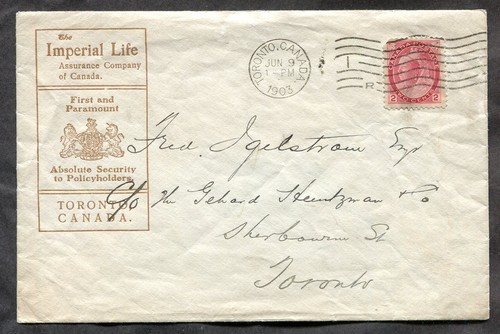 The
Imperial Life
Assurance Company
of Canada.
First and
Paramount
Absolute Security
to Policyholders.
TORONTO
CANADA.
TORONTO, CANADA
JUN 9
1-PM
1903
1
R
2 2
Fred. Igelstrom Esq
C/o The Gehard Heintzman & Co
Sherbourne St
Toronto